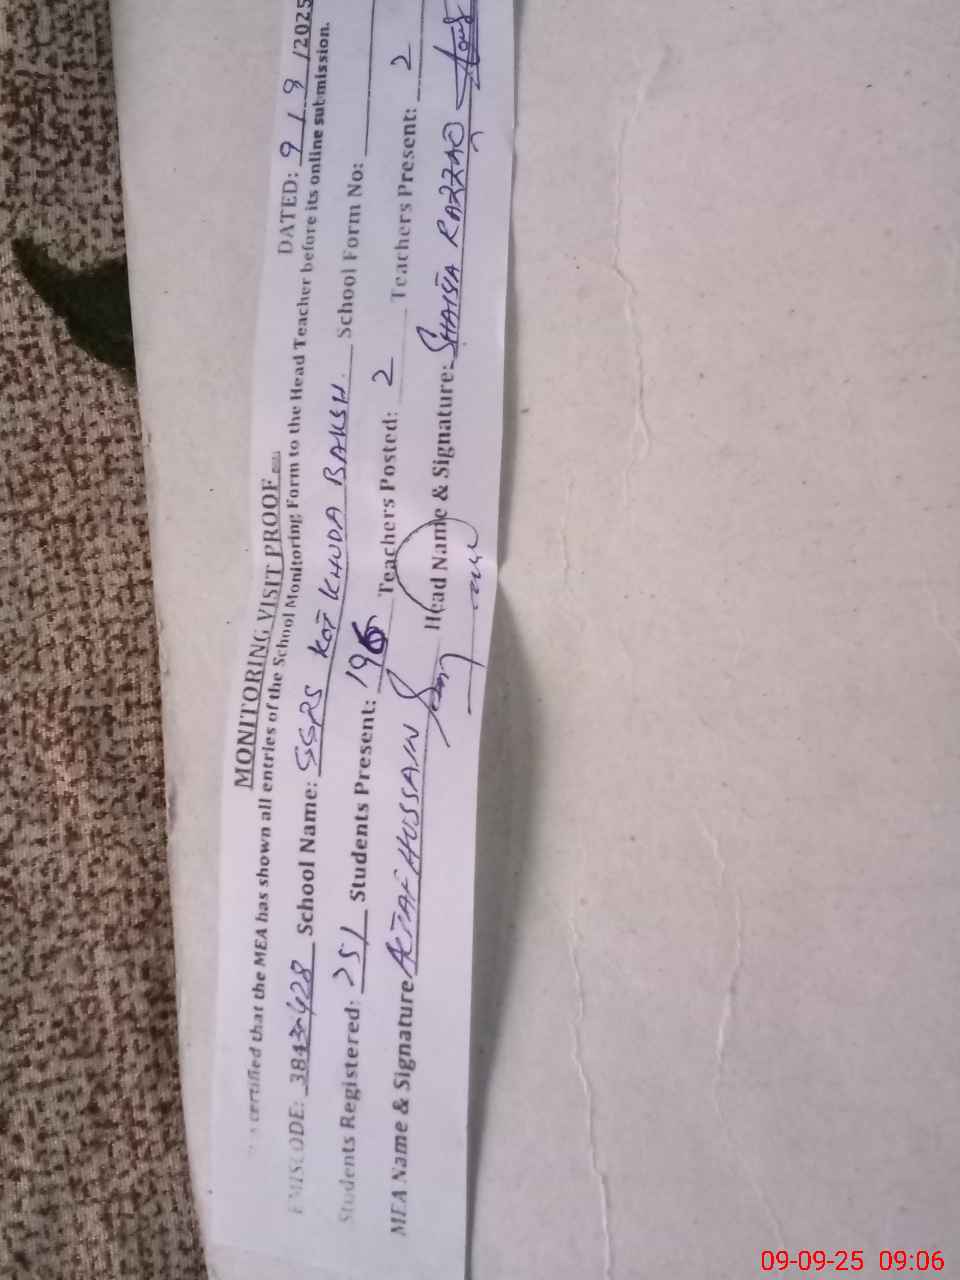 MONITORING VISIT PROOF
DATED: 9 / 9 /2025
certified that the MEA has shown all entries of the School Monitoring Form to the Head Teacher before its online submission.
EMISCODE: School Name: GGPS KOT KHUDA BAKSH. School Form No:
Students Registered: 251 Students Present: 196 Teachers Posted: 2 Teachers Present: 2
MEA Name & Signature ALTAF HUSSAIN Head Name & Signature: SHAISTA RAZZAQ
09-09-25 09:06